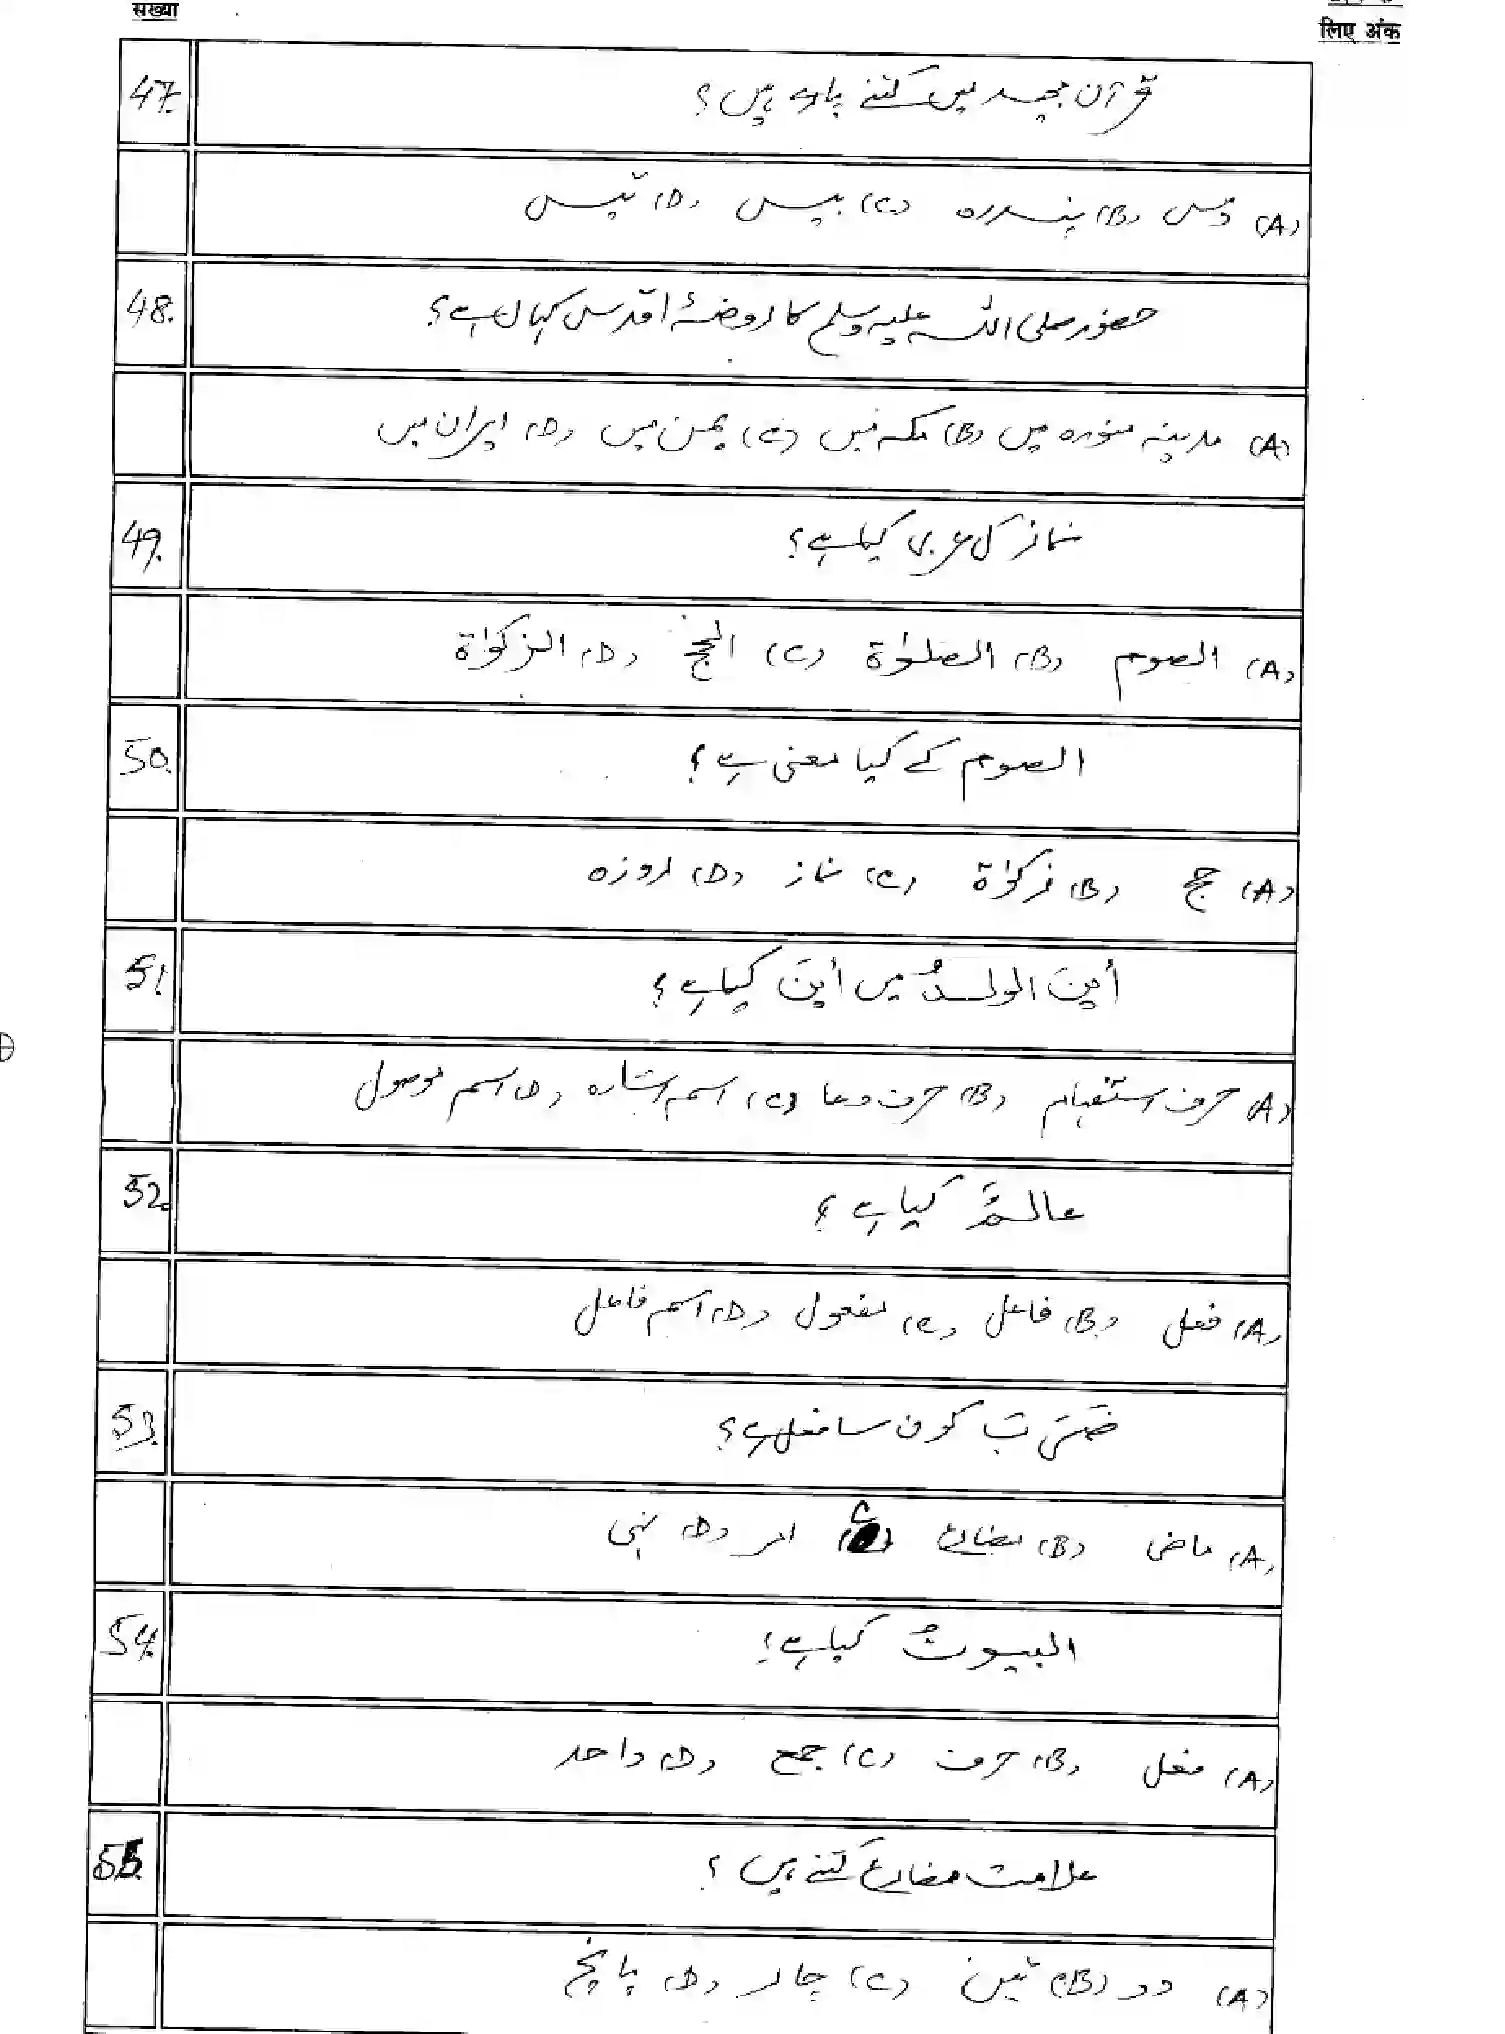 संख्या
लिए अंक
47. قرآن مجید میں کتنے پارے ہیں؟
(A) دس (B) پندرہ (C) بیس (D) تیس
48. حضور صلی اللہ علیہ وسلم کا روضۂ اقدس کہاں ہے؟
(A) مدینہ منورہ میں (B) مکہ میں (C) یمن میں (D) ایران میں
49. نماز کی عربی کیا ہے؟
(A) الصوم (B) الصلوٰة (C) الحج (D) الزکوٰة
50. الصوم کے کیا معنی ہے؟
(A) حج (B) زکوٰة (C) نماز (D) روزہ
51. أین الولدُ میں أینَ کیا ہے؟
(A) حرف استفہام (B) حرف دعا (C) اسم اشارہ (D) اسم موصول
52. عالمٌ کیا ہے؟
(A) فعل (B) فاعل (C) مفعول (D) اسم فاعل
53. ضَرَبَ کون سا فعل ہے؟
(A) ماضی (B) مضارع (C) امر (D) نہی
54. البیوتُ کیا ہے؟
(A) فعل (B) حرف (C) جمع (D) واحد
55. علامت مضارع کتنے ہیں؟
(A) دو (B) تین (C) چار (D) پانچ